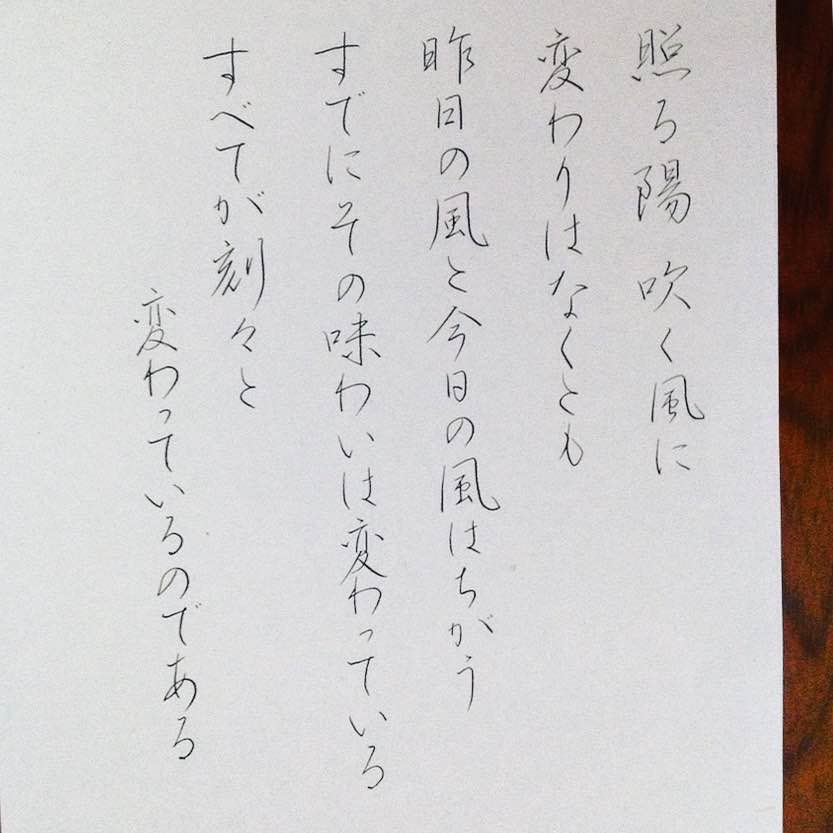 照る陽 吹く風に
変わりはなくとも
昨日の風と今日の風はちがう
すでにその味わいは変わっている
すべてが刻々と
変わっているのである